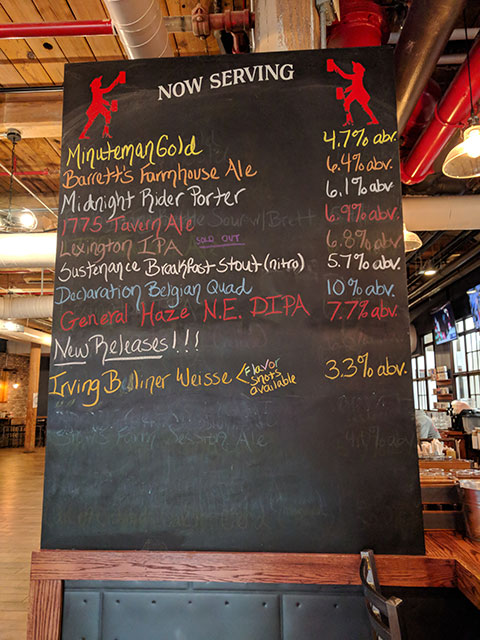 NOW SERVING
Minuteman Gold 4.7% abv.
Barrett's Farmhouse Ale 6.4% abv.
Midnight Rider Porter 6.1% abv.
1775 Tavern Ale 6.9% abv.
Lexington IPA SOLD OUT 6.8% abv.
Sustenance Breakfast Stout (nitro) 5.7% abv.
Declaration Belgian Quad 10% abv.
General Haze N.E. DIPA 7.7% abv.
New Releases!!!
Irving B liner Weisse < Flavor shots available 3.3% abv.